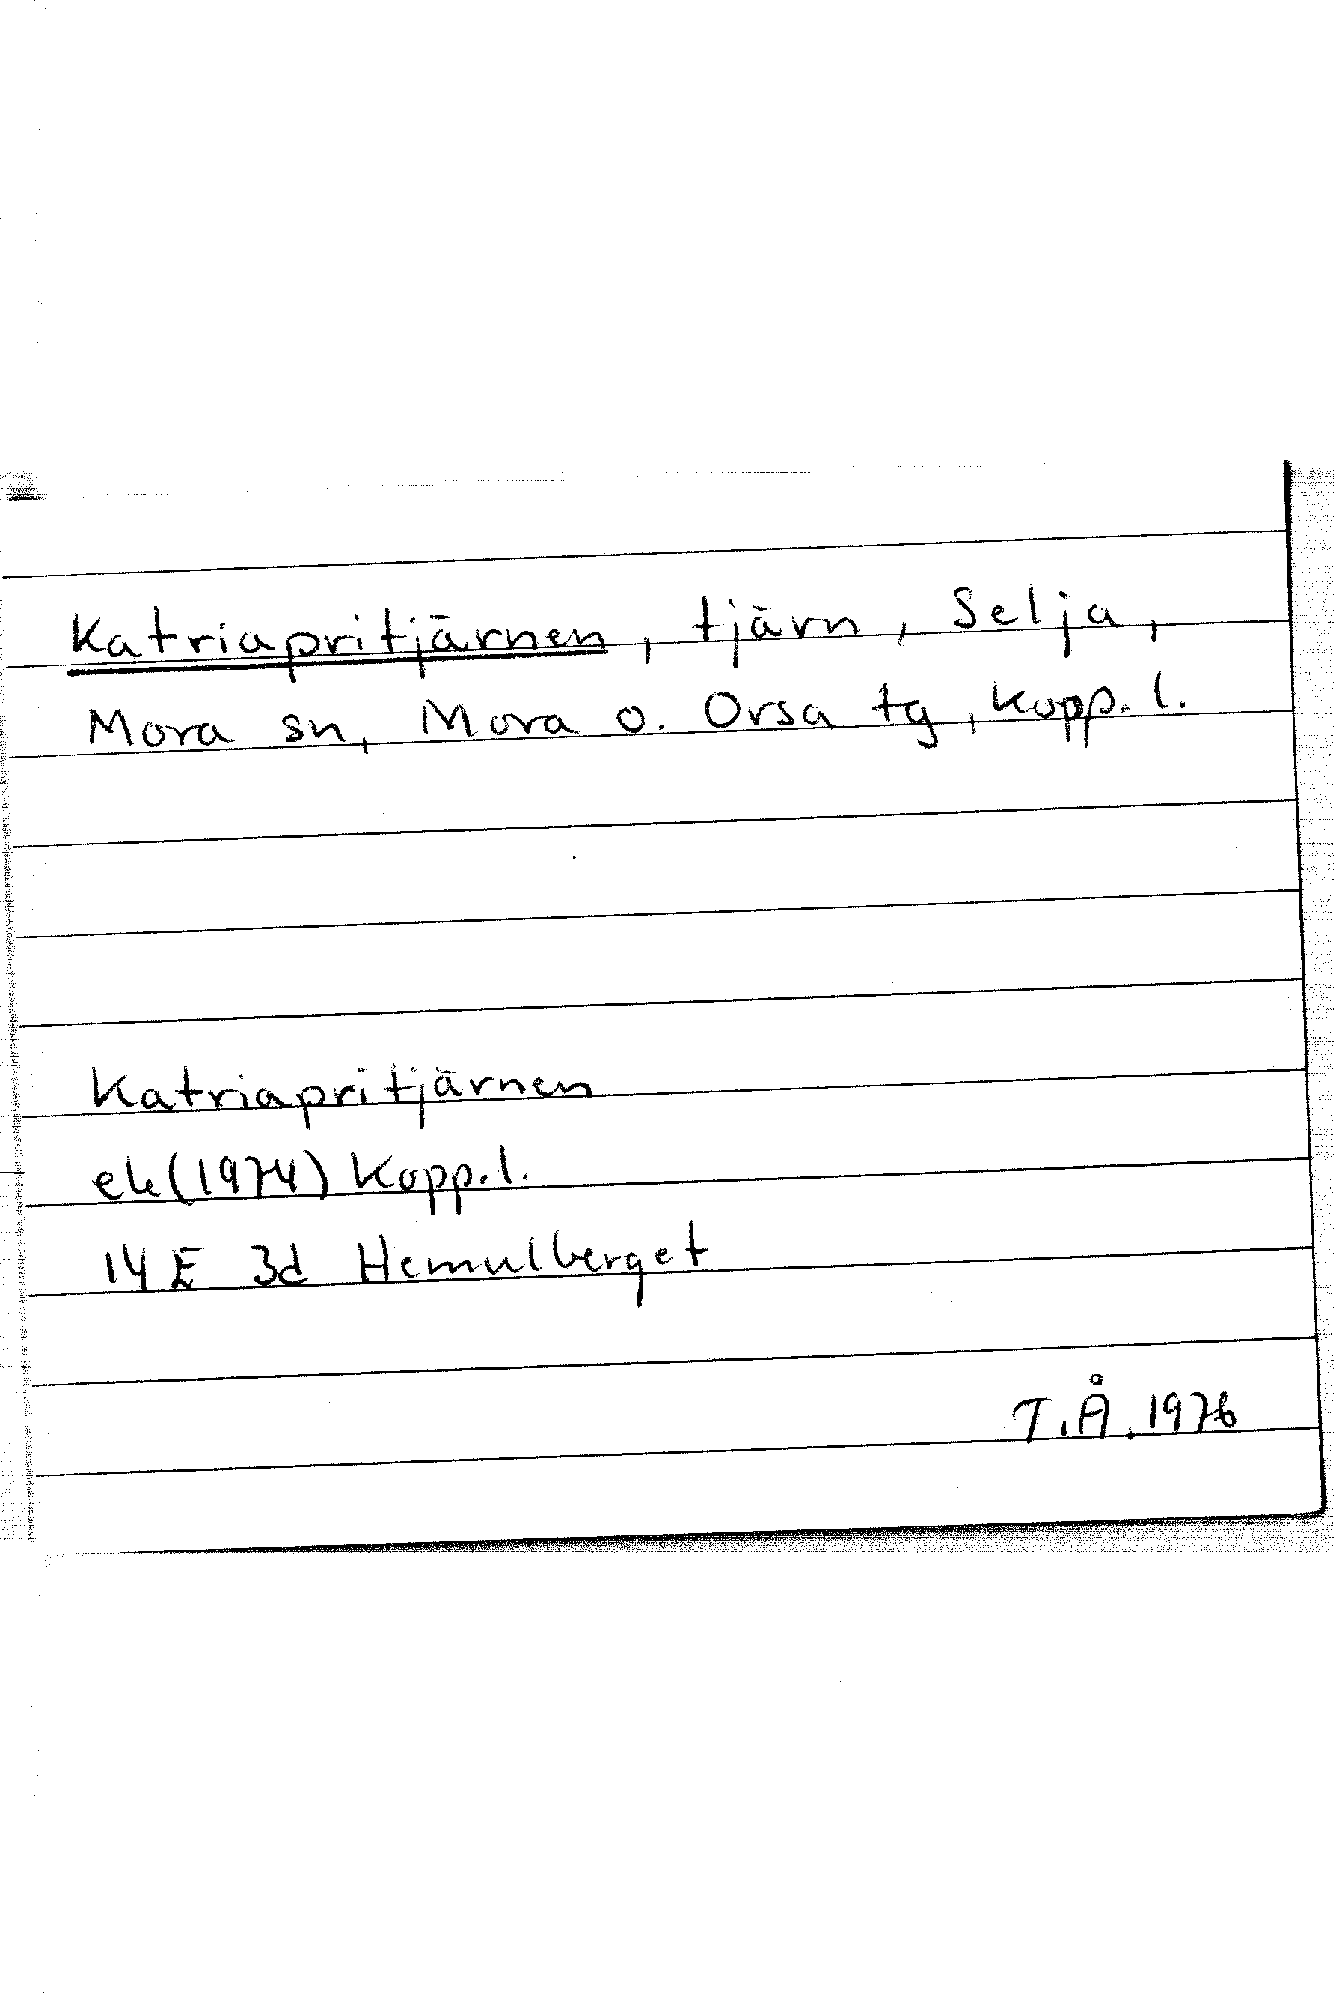 Katriapritjärnen, tjärn, Selja,
Mora sn, Mora o. Orsa tg, Kopp. l.
Katriapritjärnen
ek(1974) Kopp.l.
14E 3d Hemulberget
T.Å. 1976